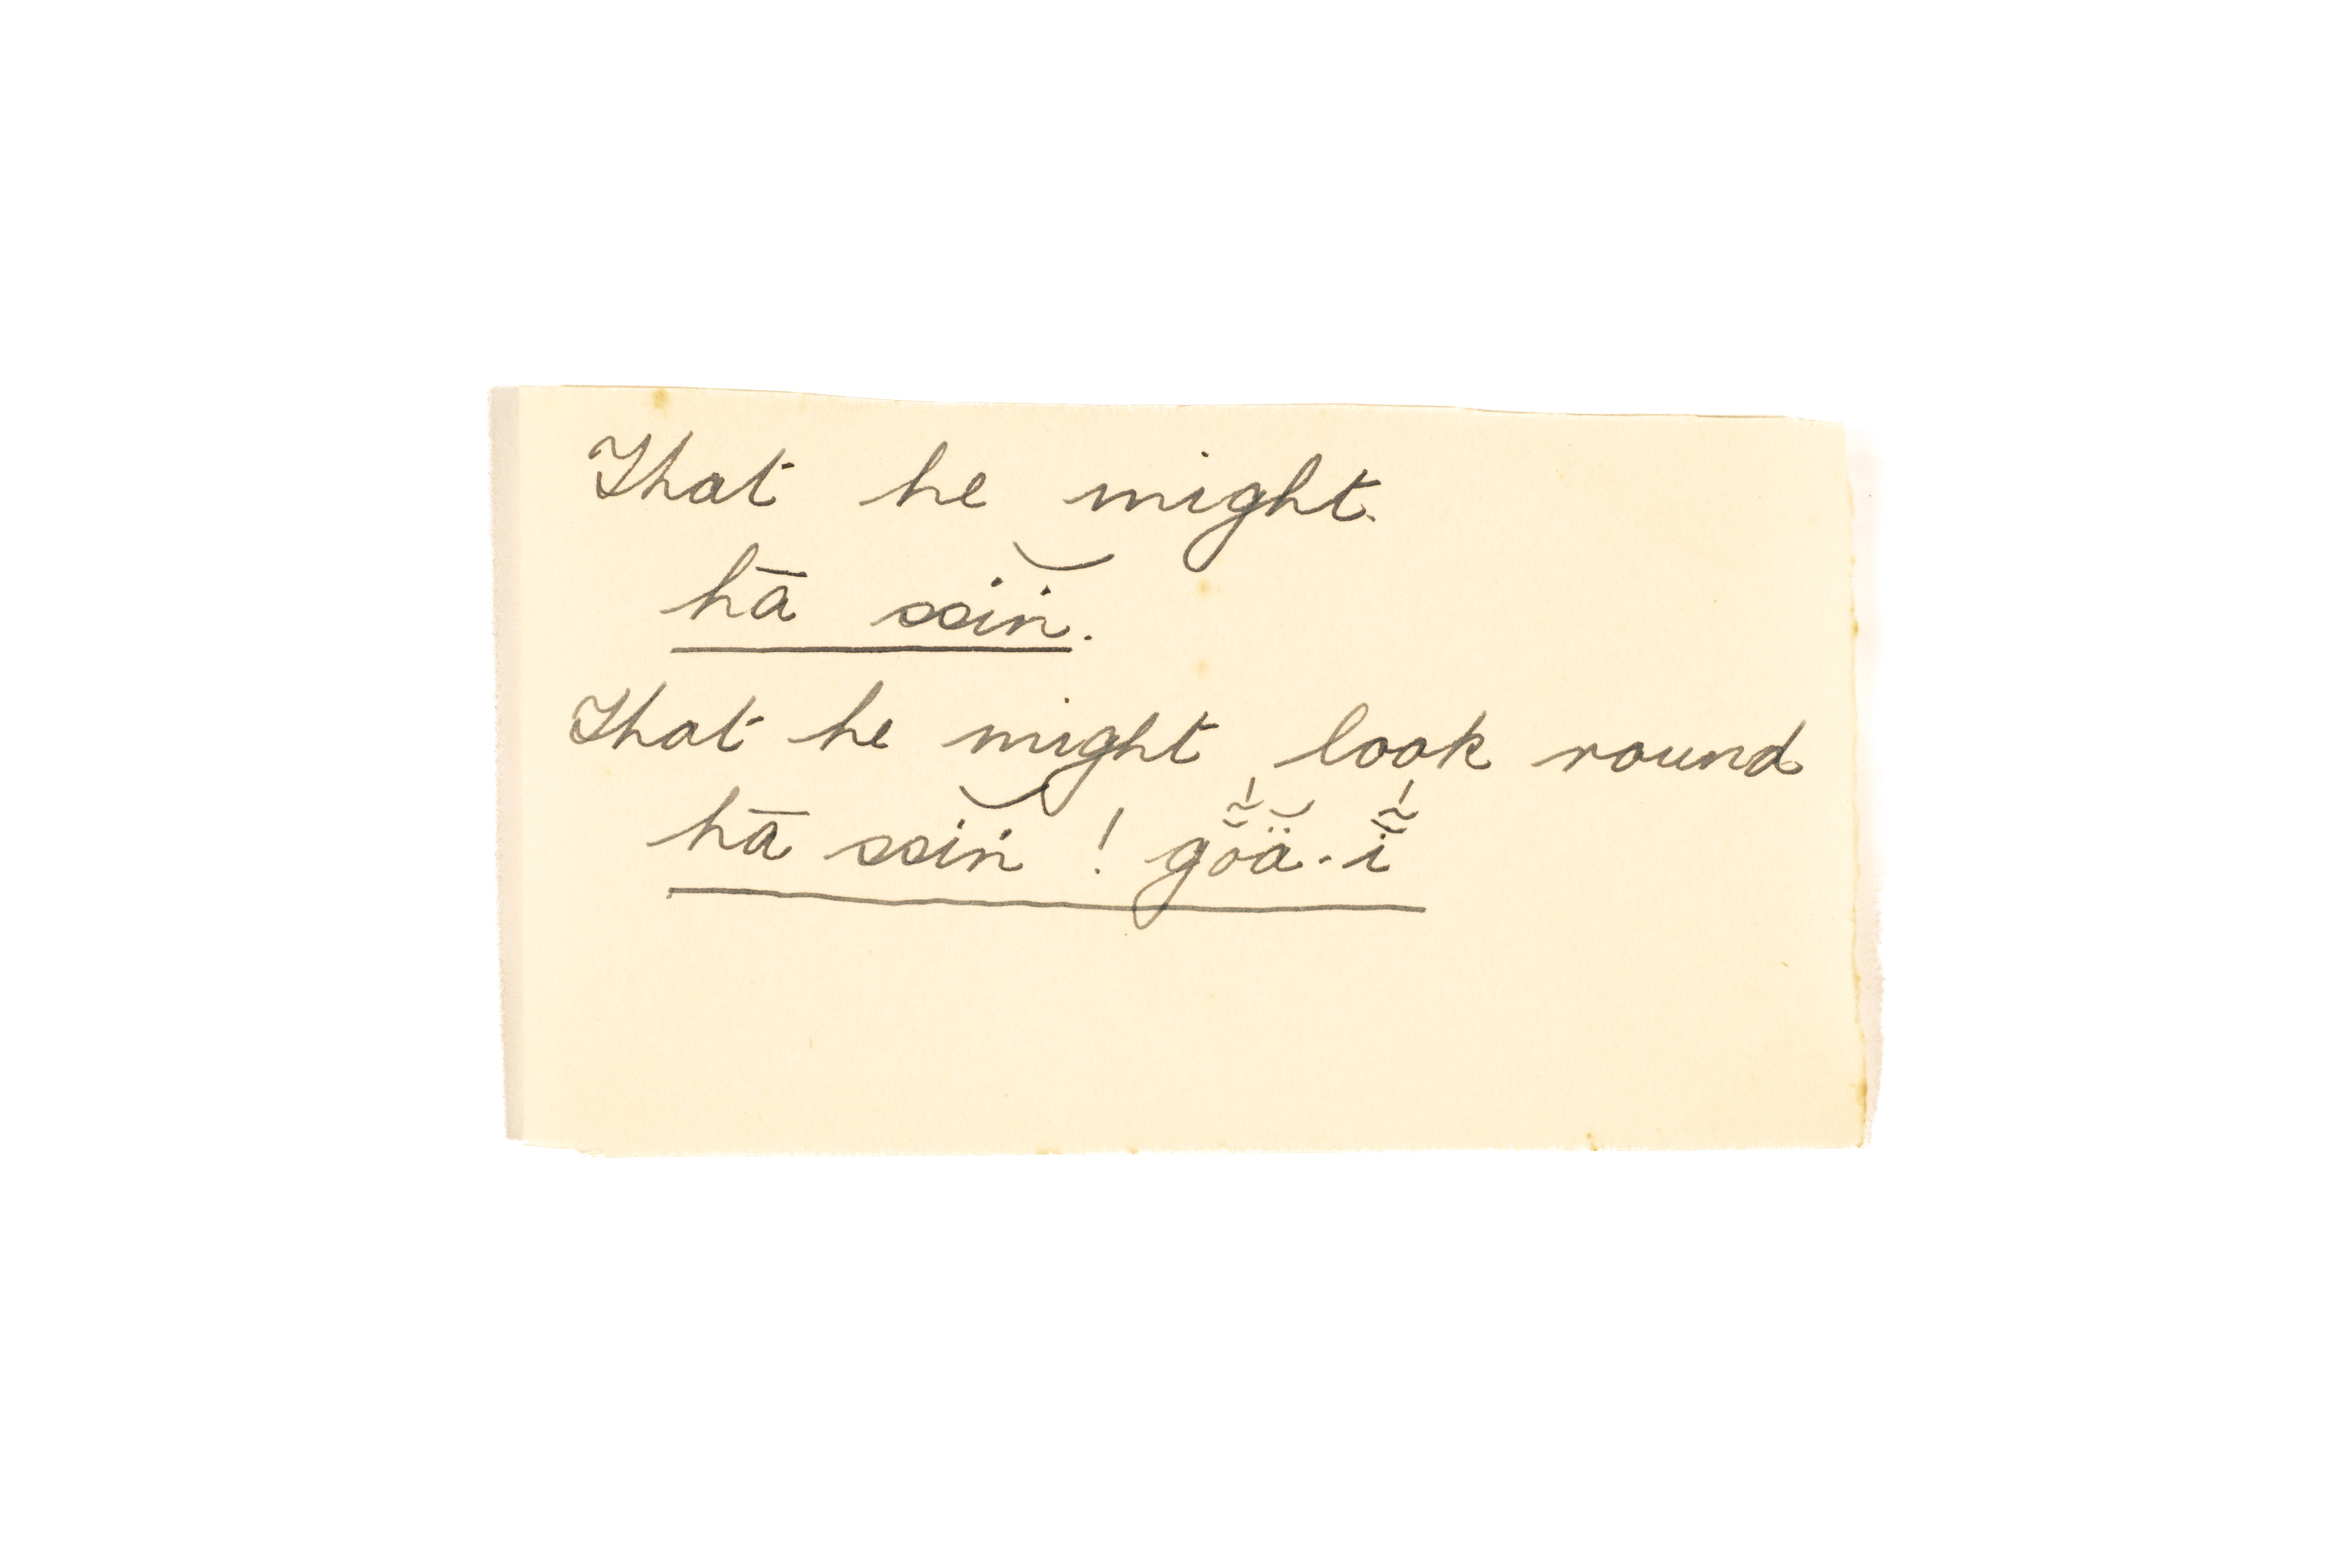 That he might.
hā ssin̆̇.
That he might look round
hā ssin̆̇ ! gŏ̰́ä̆-ḭ̆́